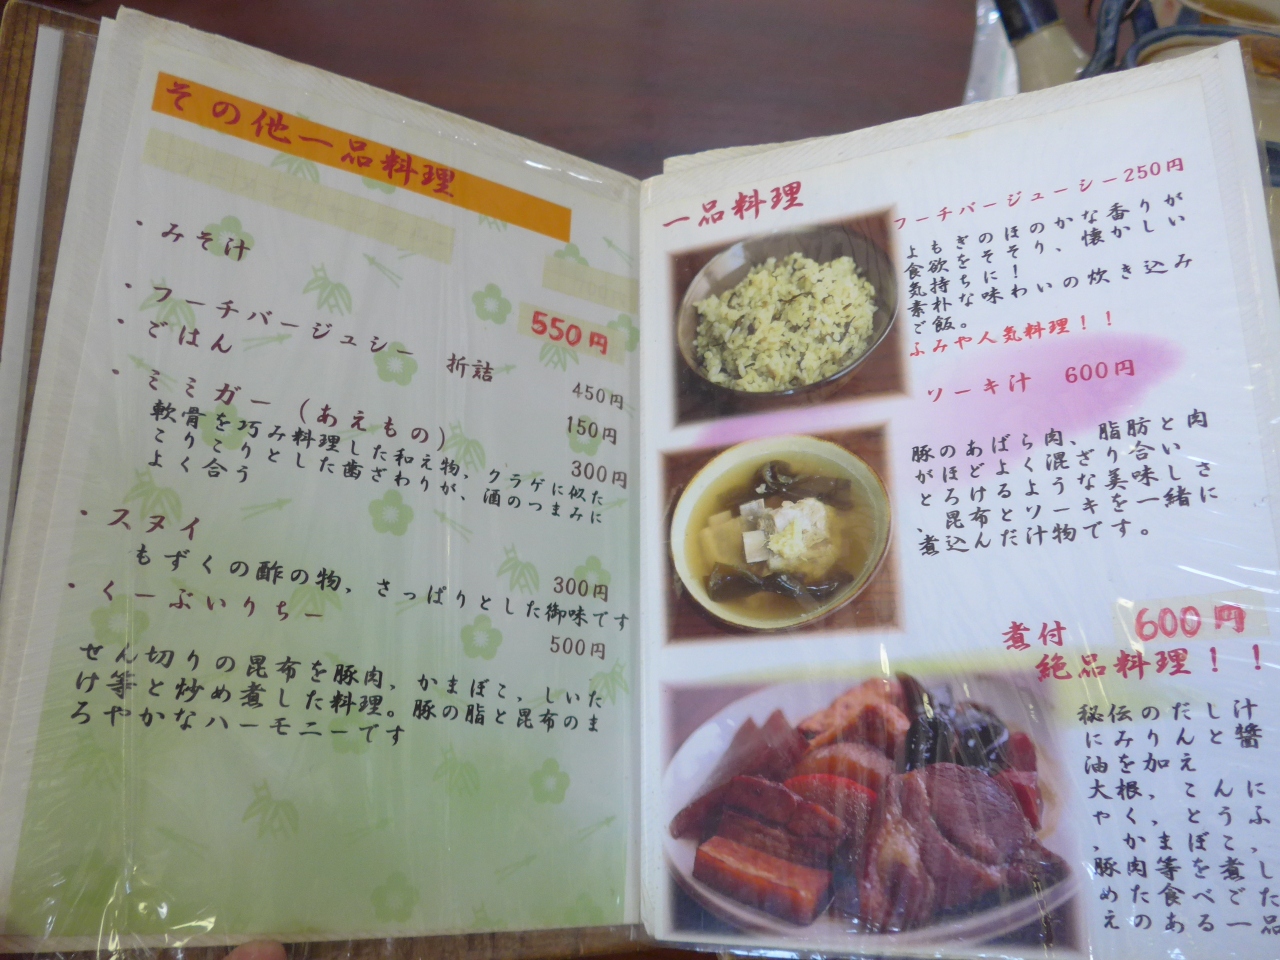 その他一品料理
・みそ汁
550円
・フーチバージュシー 折詰
450円
・ごはん
150円
・ミミガー(あえもの)
300円
軟骨を巧み料理した和え物，クラゲに似た
こりこりとした歯ざわりが、酒のつまみに
よく合う
・スヌイ
300円
もずくの酢の物，さっぱりとした御味です
・くーぶいりちー
500円
せん切りの昆布を豚肉，かまぼこ，しいた
け等と炒め煮した料理。豚の脂と昆布のま
ろやかなハーモニーです
一品料理
フーチバージューシー250円
よもぎのほのかな香りが
食欲をそそり、懐かしい
気持ちに！
素朴な味わいの炊き込み
ご飯。
ふみや人気料理！！
ソーキ汁 600円
豚のあばら肉、脂肪と肉
がほどよく混ざり合い
とろけるような美味しさ
、昆布とソーキを一緒に
煮込んだ汁物です。
煮付 600円
絶品料理！！
秘伝のだし汁
にみりんと醤
油を加え
大根，こんに
ゃく，とうふ
，かまぼこ，
豚肉等を煮し
めた食べごた
えのある一品